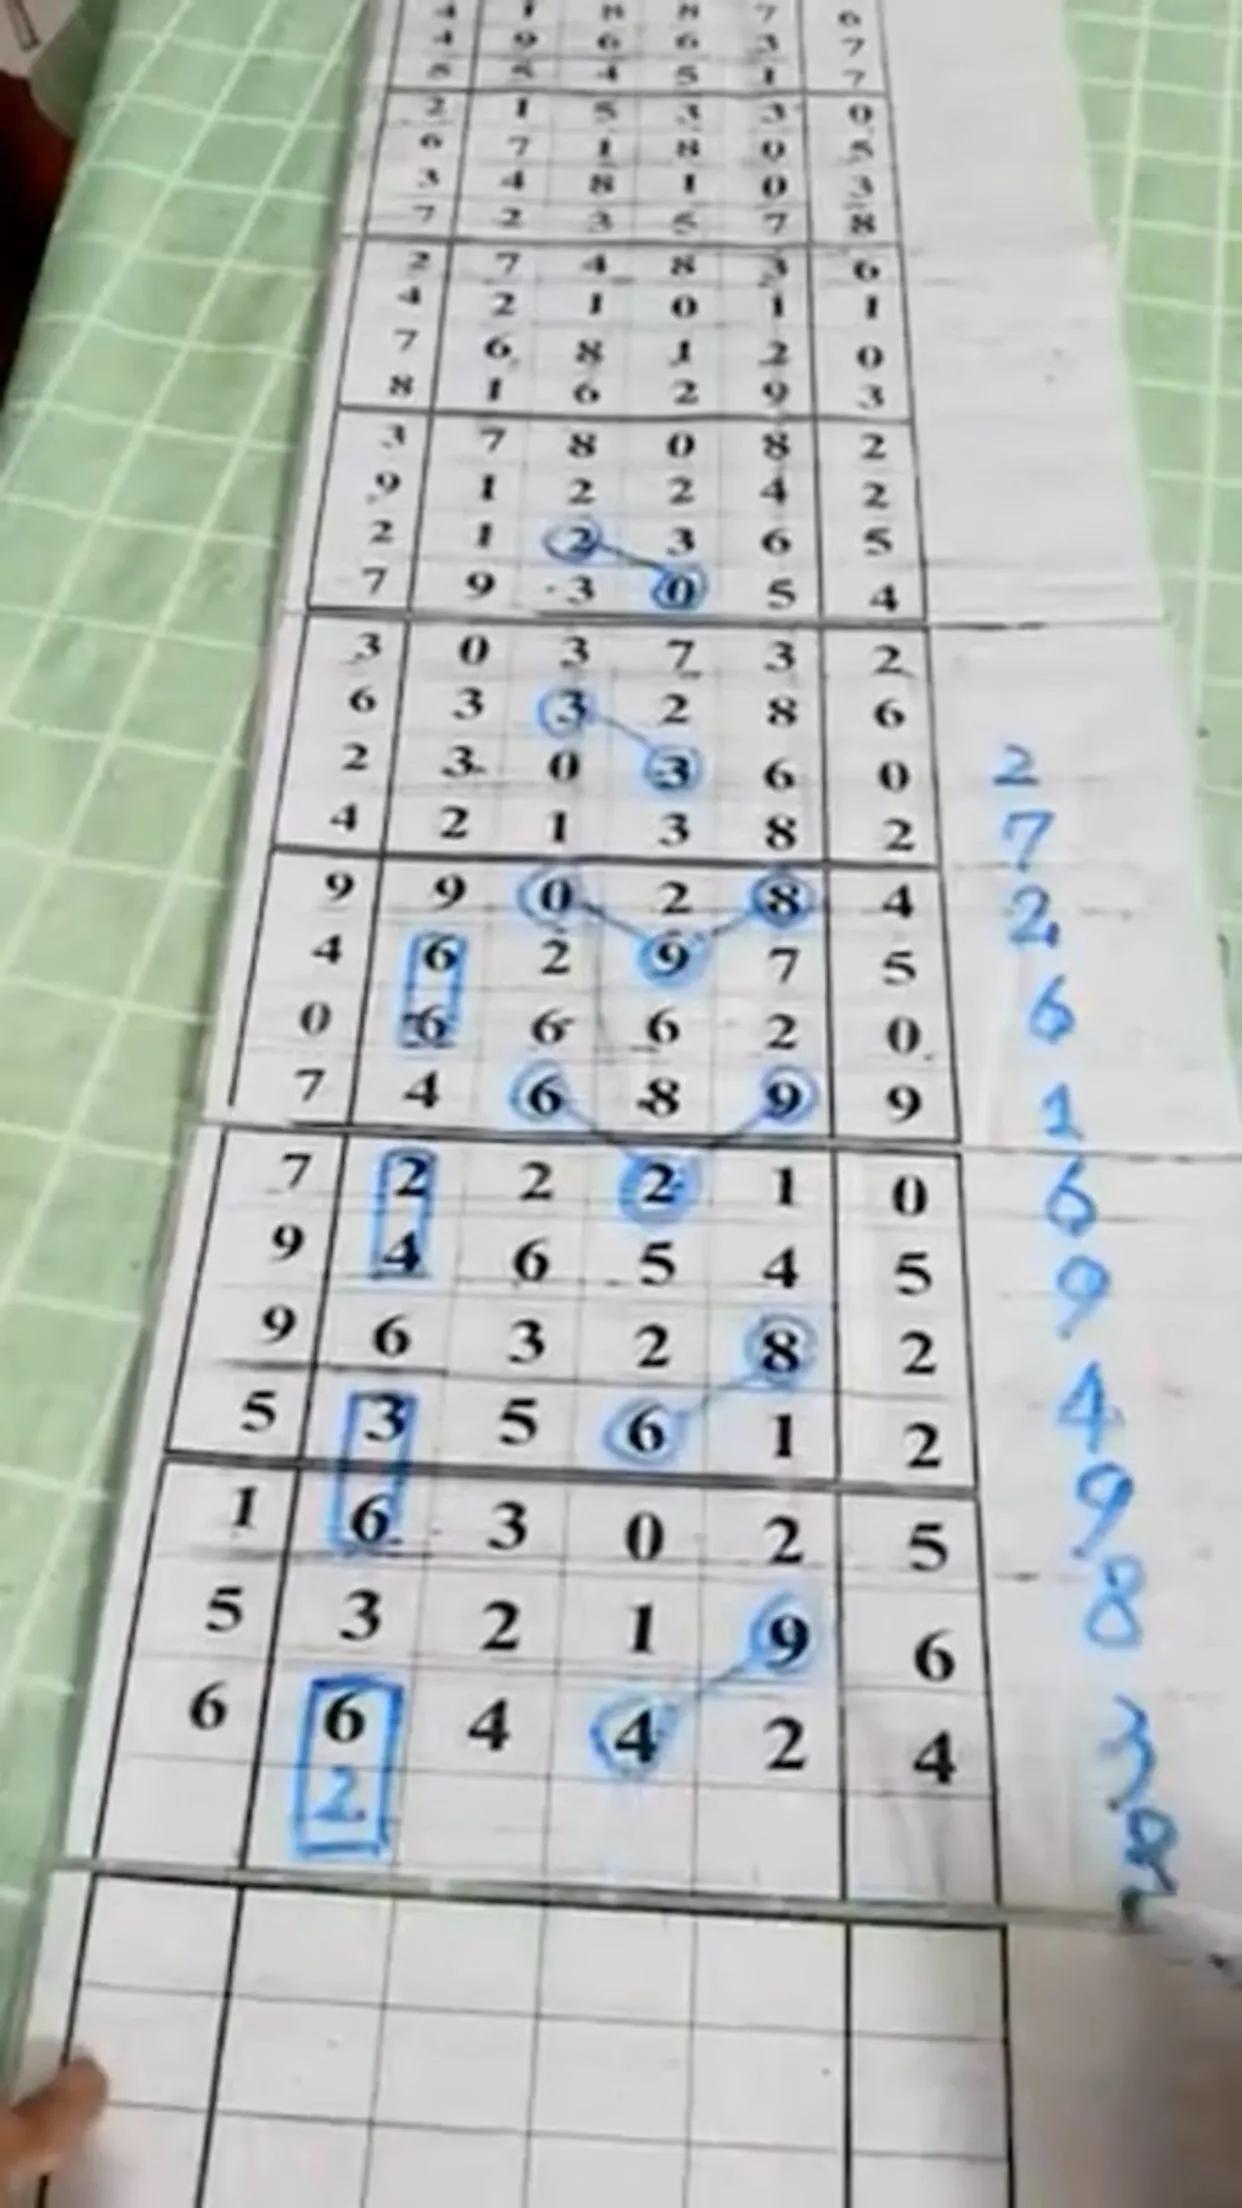 4 1 8 8 7 6
4 9 6 6 3 7
8 5 4 5 1 7
2 1 5 3 3 0
6 7 1 8 0 5
3 4 8 1 0 3
7 2 3 5 7 8
2 7 4 8 3 6
4 2 1 0 1 1
7 6 8 1 2 0
8 1 6 2 9 3
3 7 8 0 8 2
9 1 2 2 4 2
2 1 2 3 6 5
7 9 3 0 5 4
3 0 3 7 3 2
6 3 3 2 8 6
2 3 0 3 6 0 2
4 2 1 3 8 2 7
9 9 0 2 8 4 2
4 6 2 9 7 5 6
0 6 6 6 2 0
7 4 6 8 9 9 1
7 2 2 2 1 0 6
9 4 6 5 4 5 9
9 6 3 2 8 2 4
5 3 5 6 1 2
1 6 3 0 2 5 9
5 3 2 1 9 6 8
6 6 4 4 2 4 3
2 8